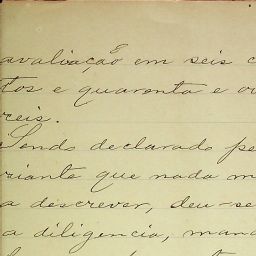 avaliação em seis c
tos e quarenta e oi
reis.
Sendo declarado pe
riante que nada m
a descrever, deu-se
a diligencia, mand